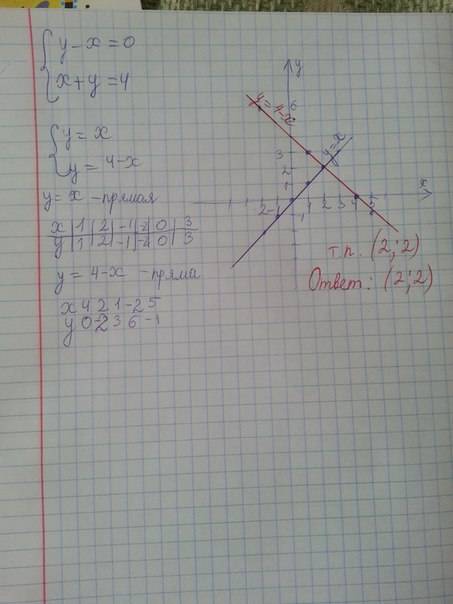 y-x=0
x+y=4
y=x
y=4-x
y=x -прямая
x|1|2|-1|-2|0|3
y|1|2|-1|-2|0|3
y=4-x -пряма
x 4 2 1 -2 5
y 0 2 3 6 -1
y
6
y=4-x
y=x
3
2
1
x
2 -1 1 2 3 4 5
т.п. (2;2)
Ответ: (2;2)